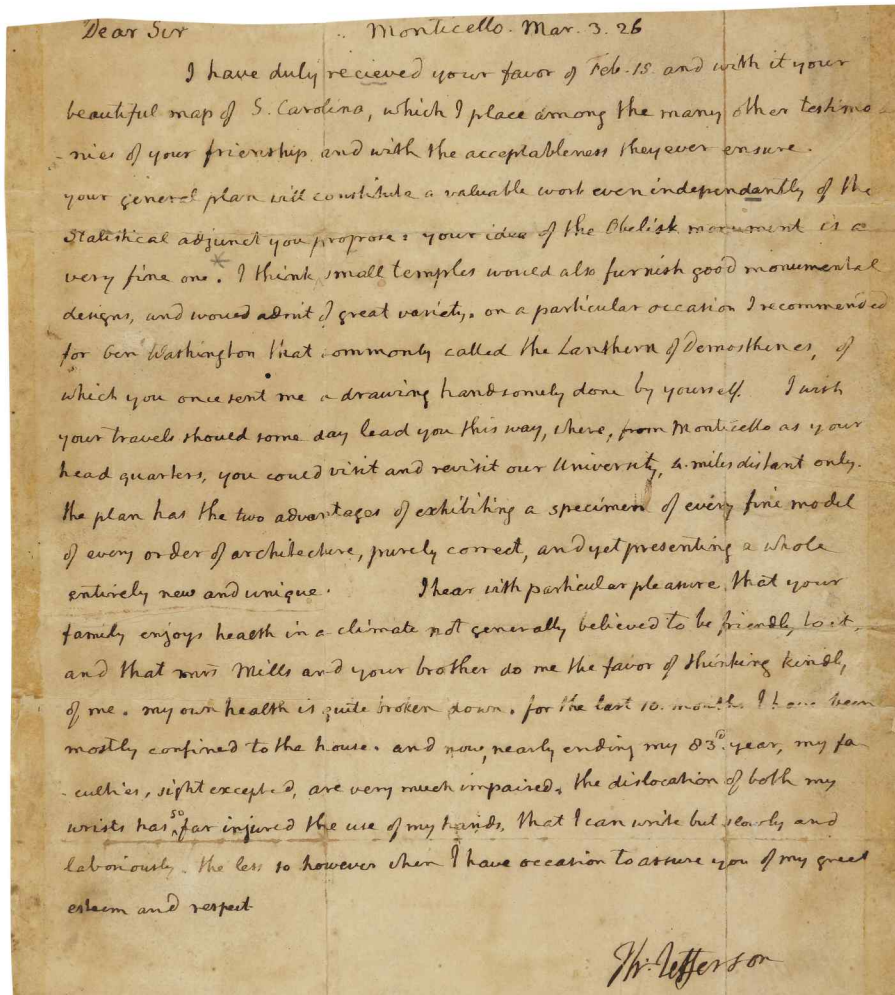 Dear Sir Monticello. Mar. 3. 26
I have duly recieved your favor of Feb. 15. and with it your
beautiful map of S. Carolina, which I place among the many other testimo-
-nies of your friendship and with the acceptableness they ever ensure.
your general plan will constitute a valuable work even independantly of the
Statistical adjunct you propose. your idea of the Obelisk monument is a
very fine one. * I think small temples would also furnish good monumental
designs, and would admit of great variety. on a particular occasion I recommended
for Gen Washington that commonly called the Lanthern of Demosthenes, of
which you once sent me a drawing handsomely done by yourself. I wish
your travels should some day lead you this way, where, from Monticello as your
head quarters, you could visit and revisit our University, 4. miles distant only.
the plan has the two advantages of exhibiting a specimen of every fine model
of every order of architecture, purely correct, and yet presenting a whole
entirely new and unique. I hear with particular pleasure that your
family enjoys health in a climate not generally believed to be friendly to it,
and that mrs Mills and your brother do me the favor of thinking kindly
of me. my own health is quite broken down. for the last 10. months I have been
mostly confined to the house. and now, nearly ending my 83d. year, my fa
-culties, sight excepted, are very much impaired. the dislocation of both my
wrists has so far injured the use of my hands, that I can write but slowly and
laboriously. the less so however when I have occasion to assure you of my great
esteem and respect
Th: Jefferson